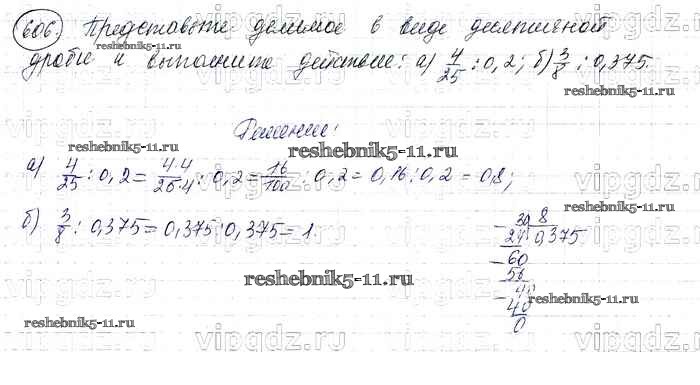 606. Представьте делимое в виде десятичной
дроби и выполните действие: а) 4/25 : 0,2; б) 3/8 : 0,375.
Решение:
а) 4/25 : 0,2 = 4·4/25·4 : 0,2 = 16/100 : 0,2 = 0,16 : 0,2 = 0,8;
б) 3/8 : 0,375 = 0,375 : 0,375 = 1.
30 | 8
- 24 | 0,375
- 60
56
- 40
40
0
reshebnik5-11.ru
reshebnik5-11.ru
reshebnik5-11.ru
reshebnik5-11.ru
reshebnik5-11.ru
reshebnik5-11.ru
reshebnik5-11.ru
vipgdz.ru
vipgdz.ru
vipgdz.ru
vipgdz.ru
vipgdz.ru
vipgdz.ru